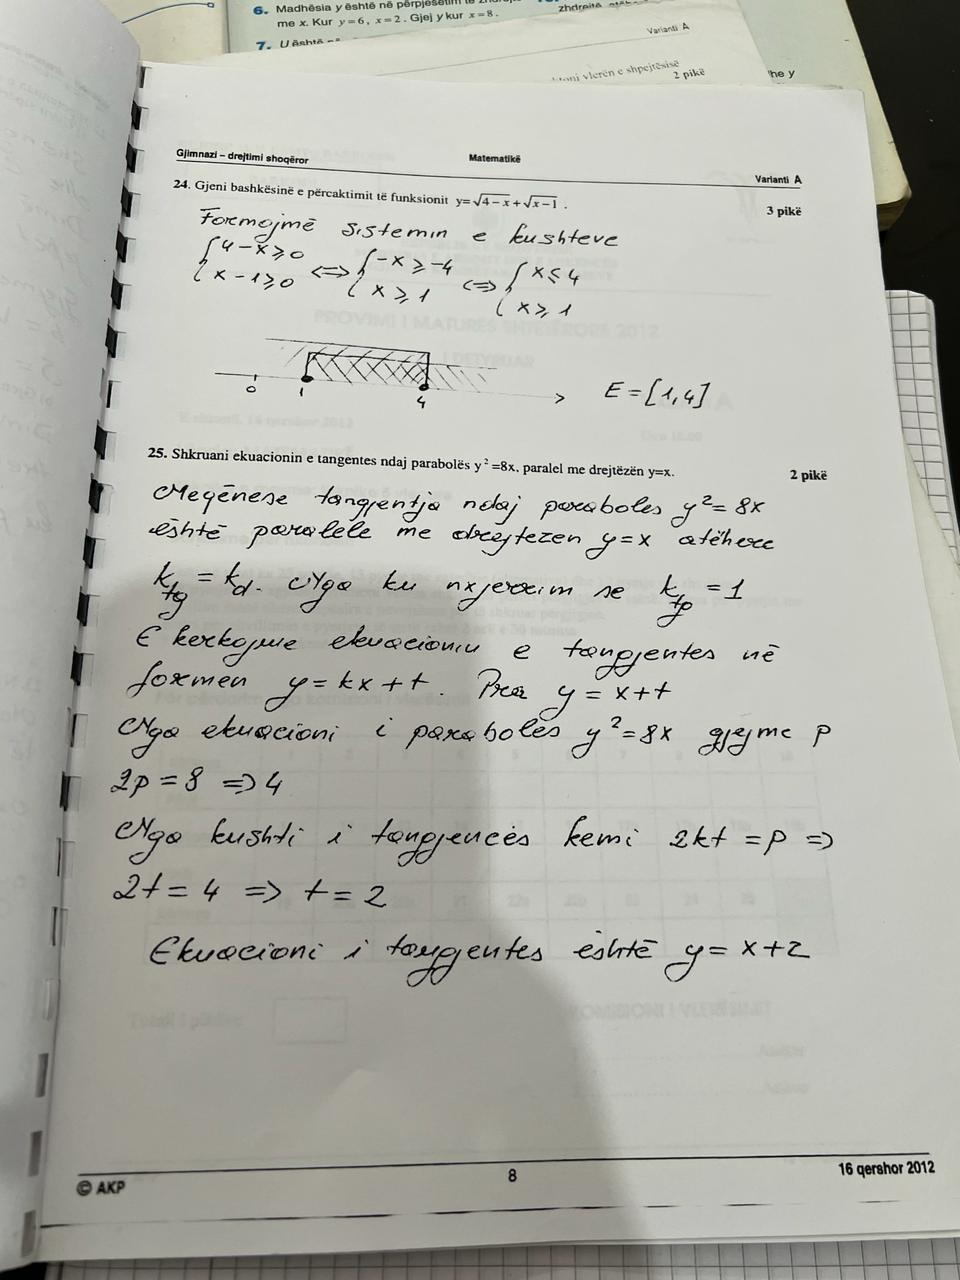 6. Madhësia y është në përpjesëtim të
me x. Kur y=6, x=2. Gjej y kur x=8.
7. U është
Varianti A
vlerën e shpejtësisë
2 pikë
he y
Gjimnazi – drejtimi shoqëror Matematikë Varianti A
24. Gjeni bashkësinë e përcaktimit të funksionit y=√4−x+√x−1 . 3 pikë
Formojmë sistemin e kushteve
{4-x≥0 <=> {-x≥-4 <=> {x≤4
{x-1≥0 {x≥1 {x≥1
0 1 4 E=[1,4]
25. Shkruani ekuacionin e tangentes ndaj parabolës y²=8x, paralel me drejtëzën y=x. 2 pikë
Meqënese tangjentja ndaj paraboles y²=8x
është paralele me drejtezen y=x atëhere
ktg = kd. Nga ku nxjerrim se ktg = 1
E kerkojme ekuacionin e tangjentes në
formen y=kx+t. Pra y=x+t
Nga ekuacioni i parabolës y²=8x gjejme p
2p=8 => 4
Nga kushti i tangjencës kemi 2kt=p =>
2t=4 => t=2
Ekuacioni i tangjentes është y=x+2
© AKP 8 16 qershor 2012